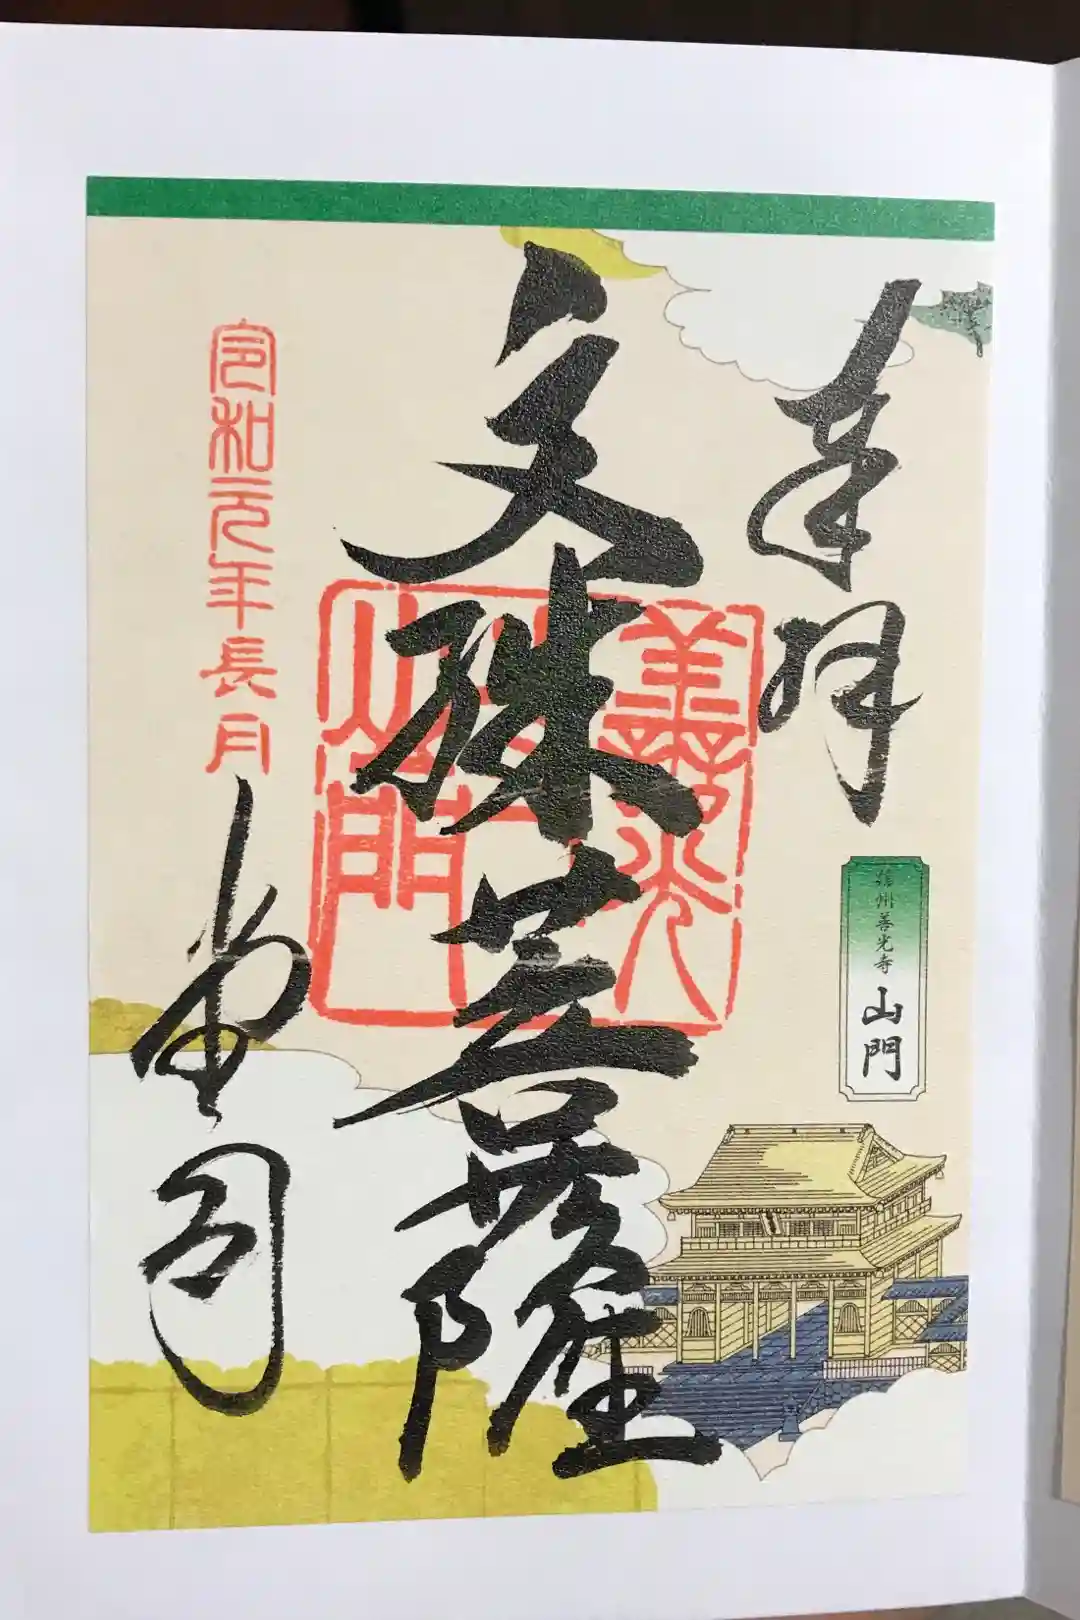 奉拝
信州善光寺 山門
文殊菩薩
善光寺
山門
令和元年長月
堂司